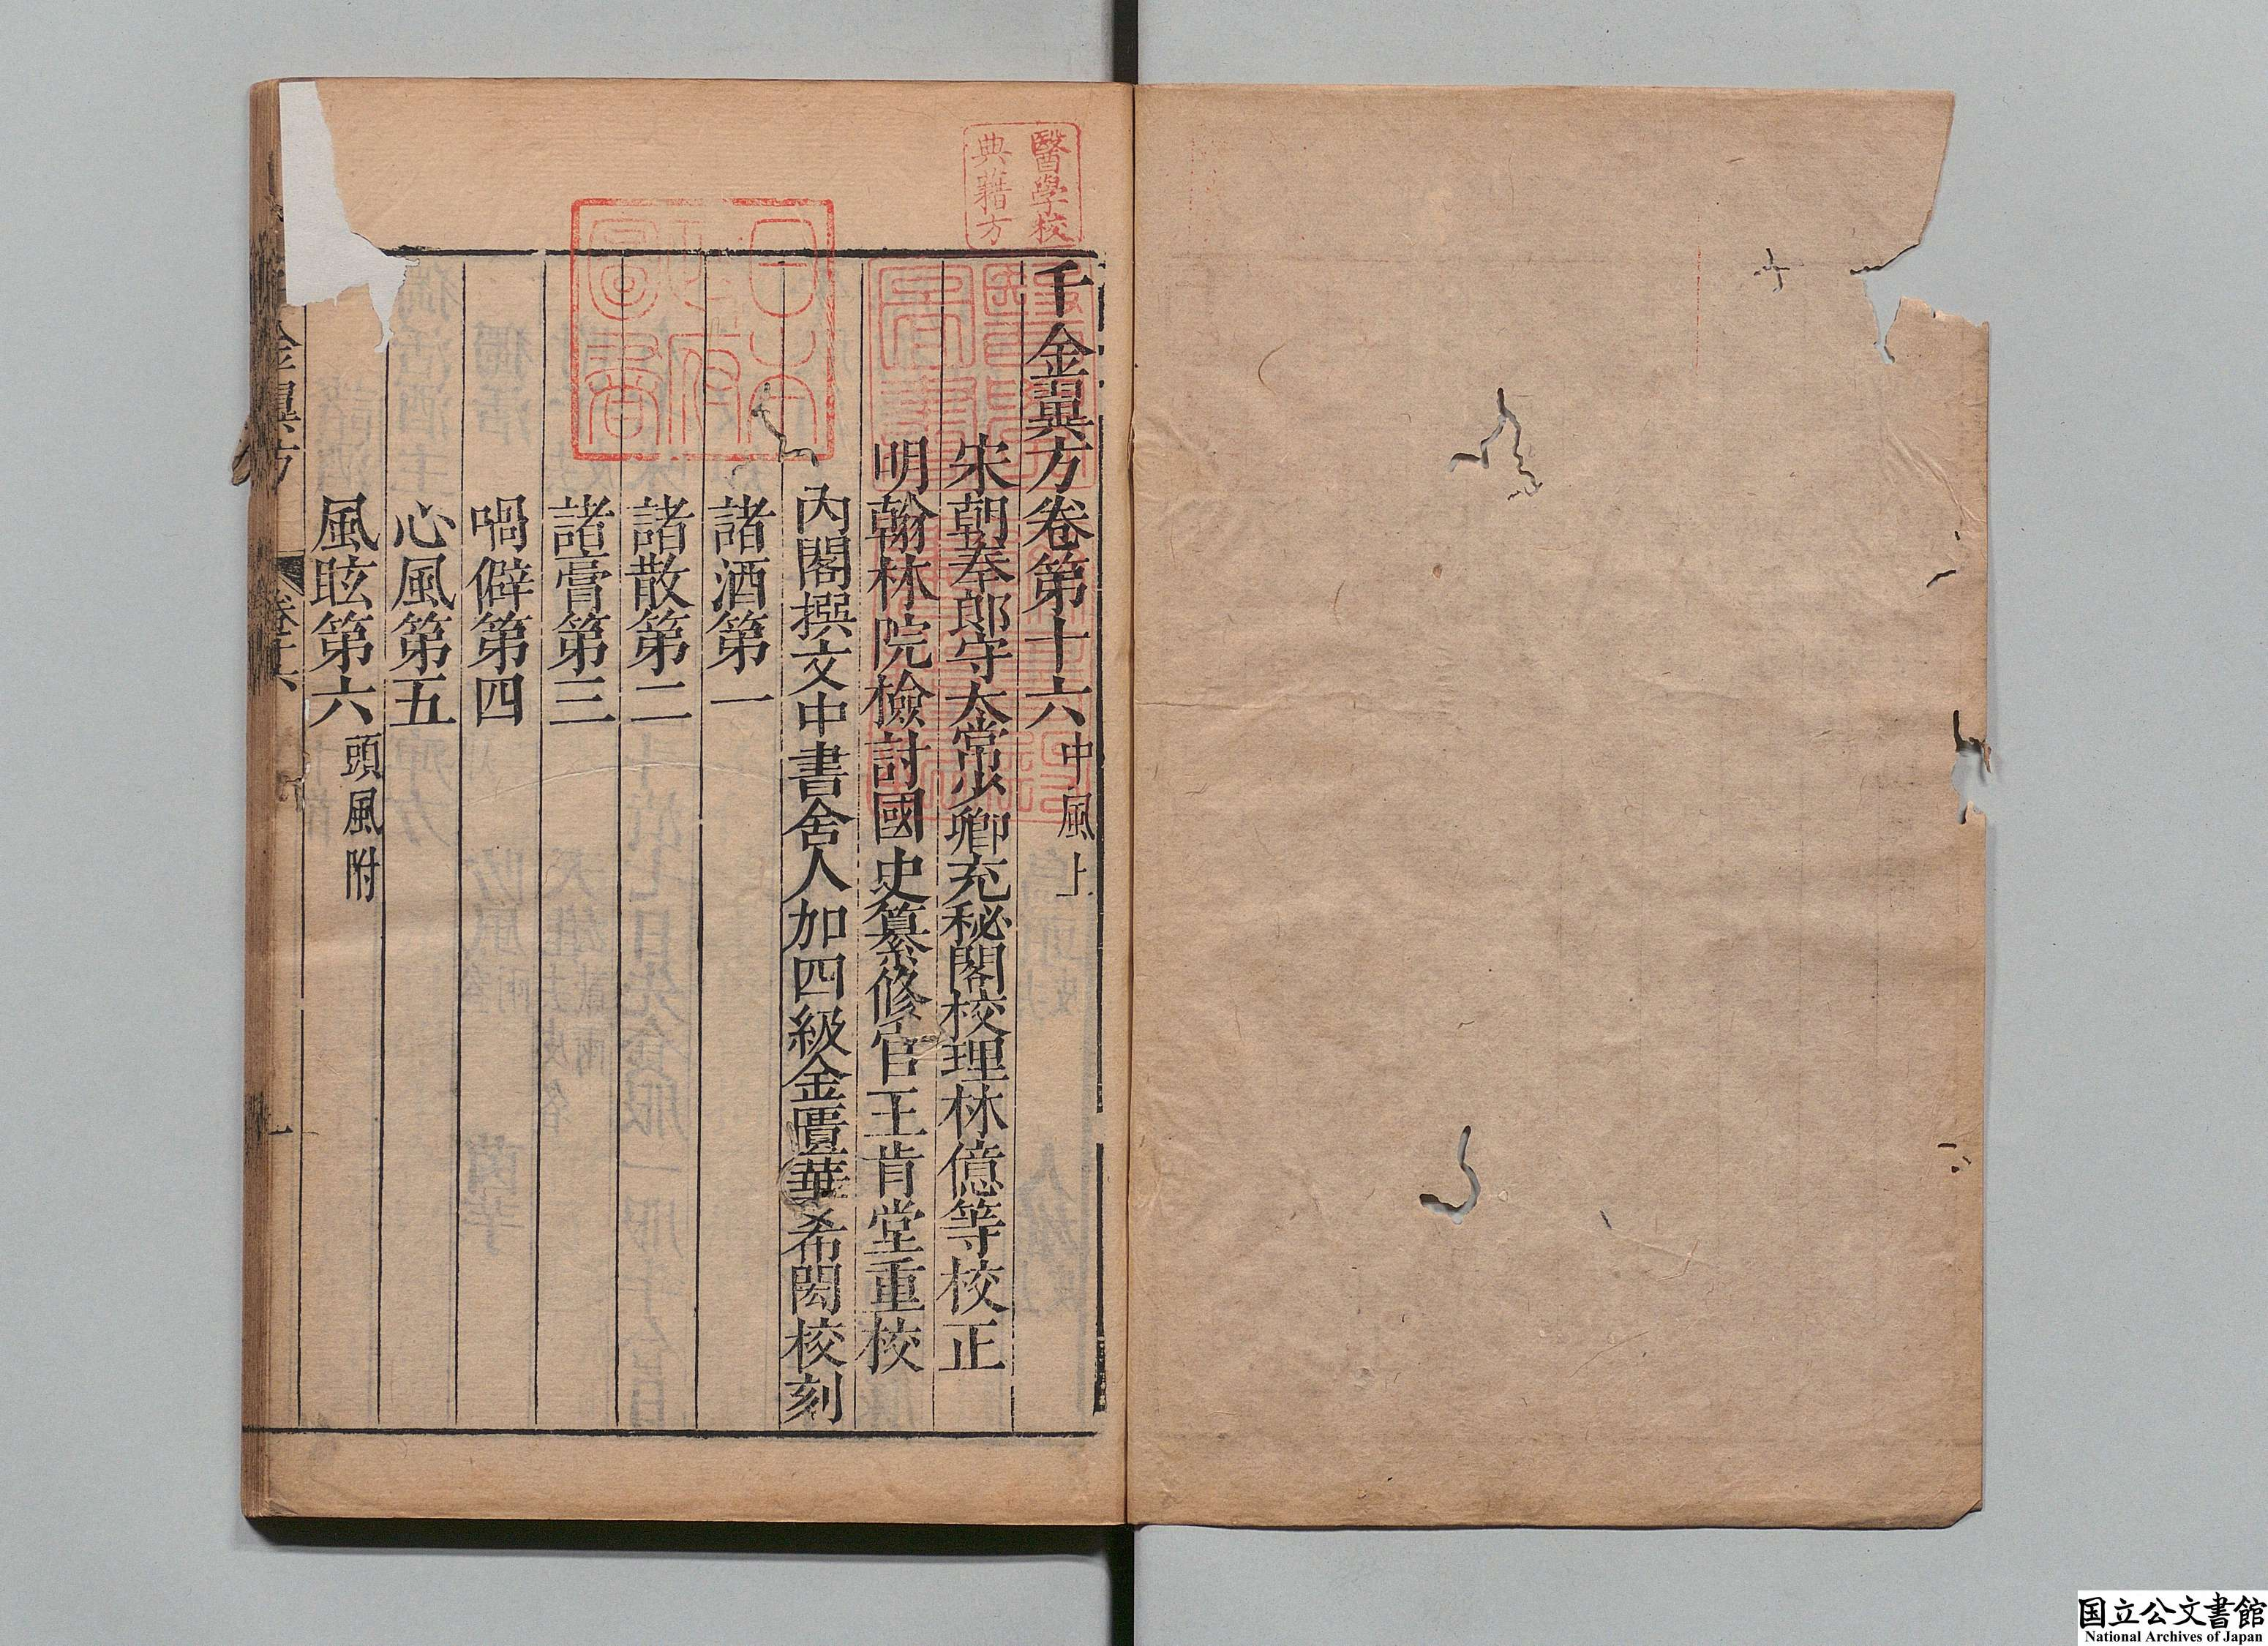 千金翼方卷第十六 中風上
宋朝奉郎守太常少卿充秘閣校理林億等校正
明翰林院檢討國史纂修官王肯堂重校
內閣撰文中書舍人加四級金匱華希閎校刻
諸酒第一
諸散第二
諸膏第三
喎僻第四
心風第五
風眩第六 頭風附
金翼方 卷十六 一
醫學校
典籍方
日本
政府
圖書
国立公文書館
National Archives of Japan